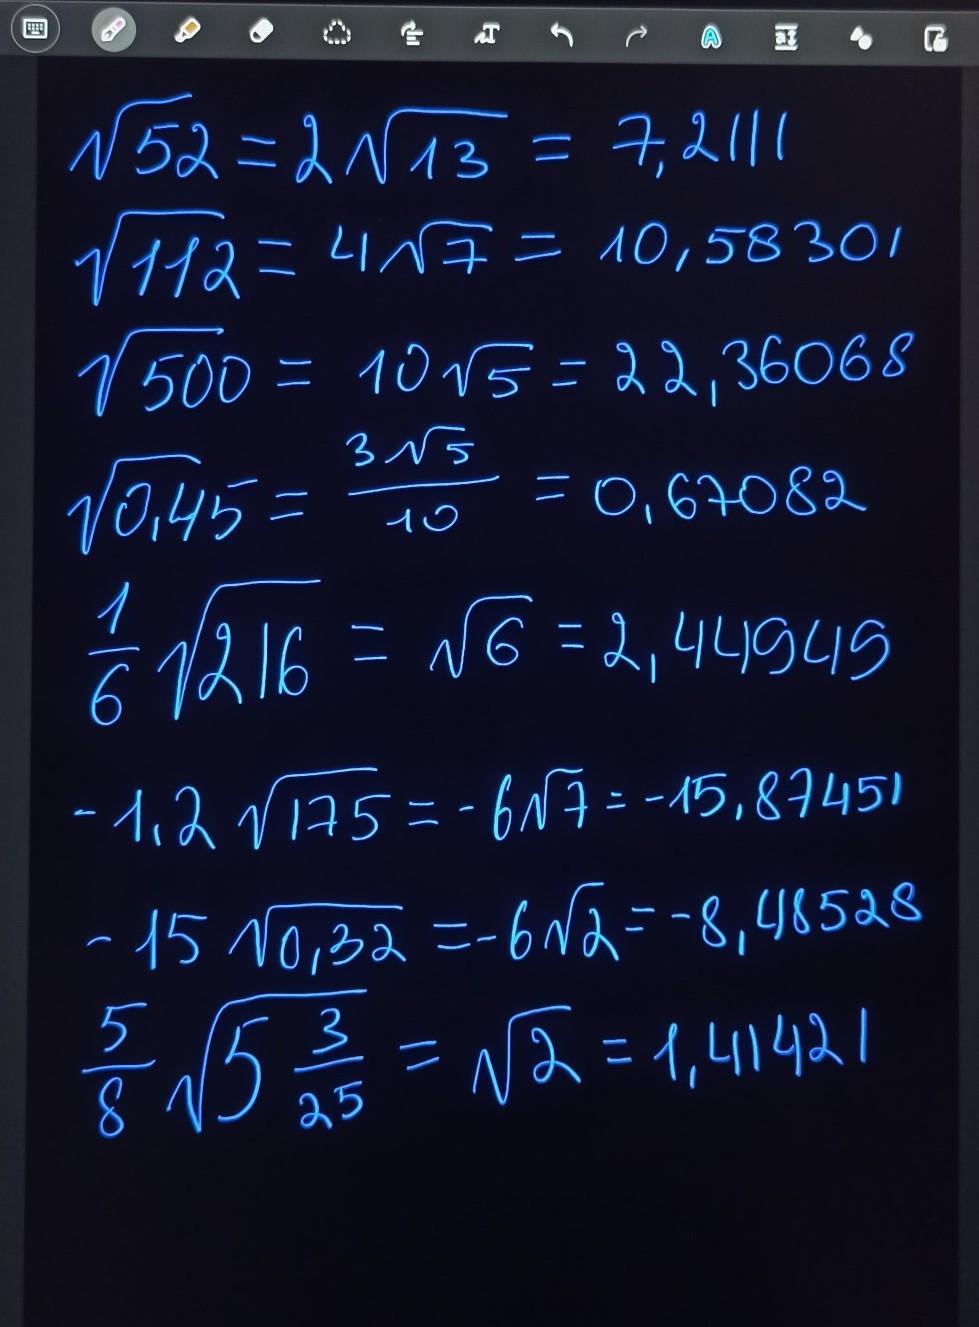 √52 = 2√13 = 7,2111
√112 = 4√7 = 10,58301
√500 = 10√5 = 22,36068
√0,45 = 3√5/10 = 0,67082
1/6 √216 = √6 = 2,44949
-1,2 √175 = -6√7 = -15,87451
-15 √0,32 = -6√2 = -8,48528
5/8 √5 3/25 = √2 = 1,41421